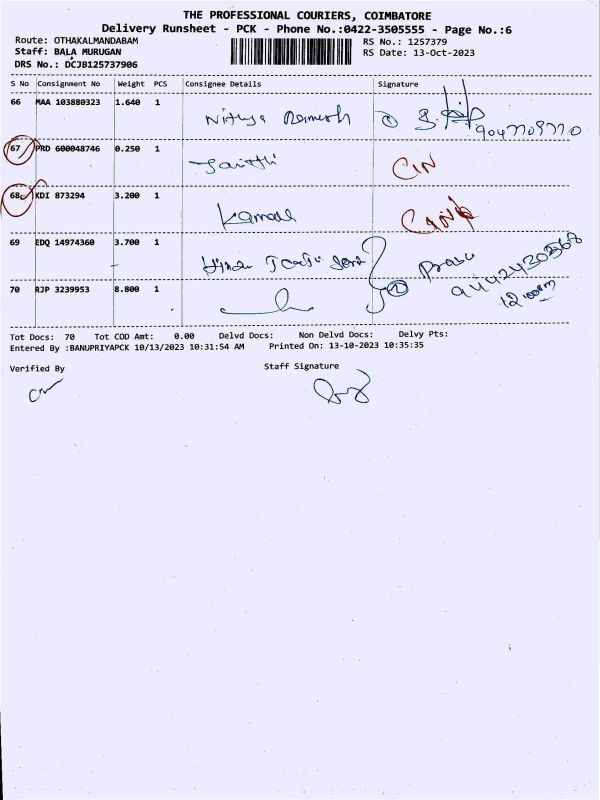 THE PROFESSIONAL COURIERS, COIMBATORE
Delivery Runsheet - PCK - Phone No.:0422-3505555 - Page No.:6
Route: OTHAKALMANDABAM
RS No.: 1257379
Staff: BALA MURUGAN
RS Date: 13-Oct-2023
DRS No.: DCJB125737906
S No Consignment No Weight PCS Consignee Details Signature
66 MAA 103880323 1.640 1
Nithya Ramesh
67 PRD 600048746 0.250 1
CIN
68 KDI 873294 3.200 1
Kamal
69 EDQ 14974360 3.700 1
Prabu
70 RJP 3239953 8.800 1
Tot Docs: 70 Tot COD Amt: 0.00 Delvd Docs: Non Delvd Docs: Delvy Pts:
Entered By :BANUPRIYAPCK 10/13/2023 10:31:54 AM Printed On: 13-10-2023 10:35:35
Verified By
Staff Signature